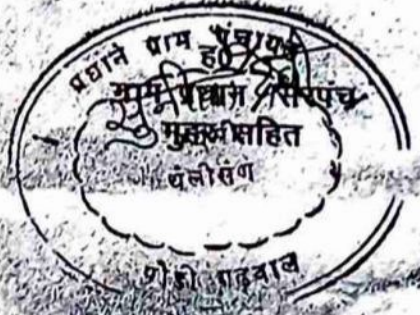 प्रधान ग्राम पंचायत
ह0
ग्राम प्रधान / सरपंच
मुहर सहित
थलीसैंण
पौड़ी गढ़वाल